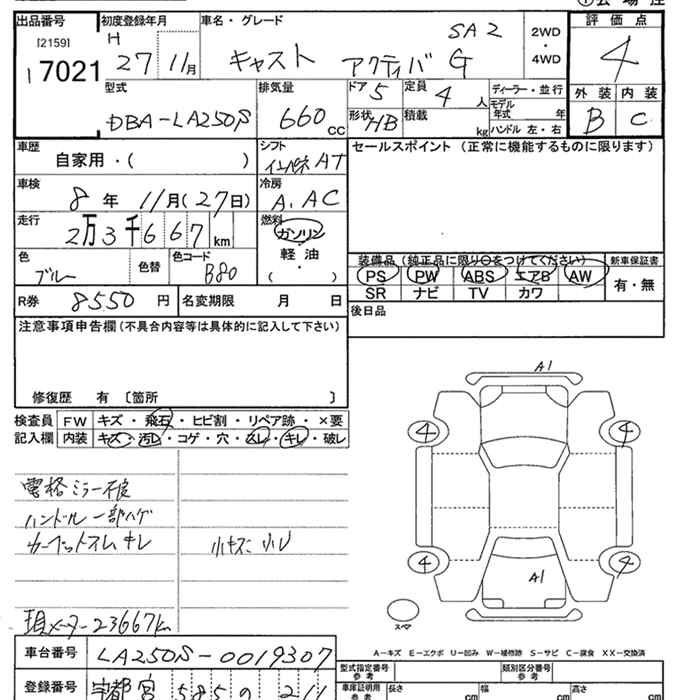 出品番号 初度登録年月 車名・グレード 2WD・4WD 評価点
[2159] H 27 11月 キャスト アクティバ G SA2 4
17021
型式 排気量 ドア 5 定員 4 人 ディーラー・並行 外装 内装
DBA-LA250S 660 cc 形状 HB 積載 kg モデル年式 年 B C
ハンドル 左・右
車歴 シフト セールスポイント(正常に機能するものに限ります)
自家用・( ) インパネAT
車検 冷房
8年 11月(27日) A.AC
走行 燃料
2万3千667km ガソリン・軽油・( )
色 色替 色コード
ブルー B80
装備品(純正品に限り○をつけてください) 新車保証書
PS PW ABS エアB AW 有・無
SR ナビ TV カワ
R券 8550円 名変期限 月 日 後日品
注意事項申告欄(不具合内容等は具体的に記入して下さい)
修復歴 有 〔箇所 〕
検査員 FW キズ・飛石・ヒビ割・リペア跡・×要
記入欄 内装 キズ・汚レ・コゲ・穴・スレ・キレ・破レ
電格ミラー不良
ハンドル一部ハゲ
カーペットスレ キレ 小キズ 小U
現メーター23667km
A1
4 4
4 4
A1
スペア
A-キズ E-エクボ U-凹み W-補修跡 S-サビ C-腐食 XX-交換済
車台番号 LA250S-0019307 型式指定番号 類別区分番号
参考 参考
登録番号 宇都宮 585 の 211 車庫証明用 参考 長さ cm 幅 cm 高さ cm